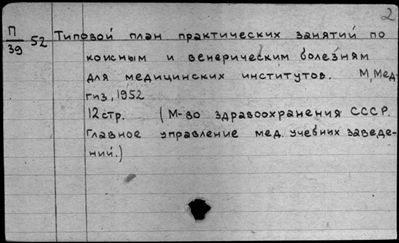 2
П/39 52 Типовой план практических занятий по
кожным и венерическим болезням
для медицинских институтов. М, Мед
гиз, 1952
12 стр. (М-во здравоохранения СССР.
Главное управление мед. учебных заведе-
ний.)